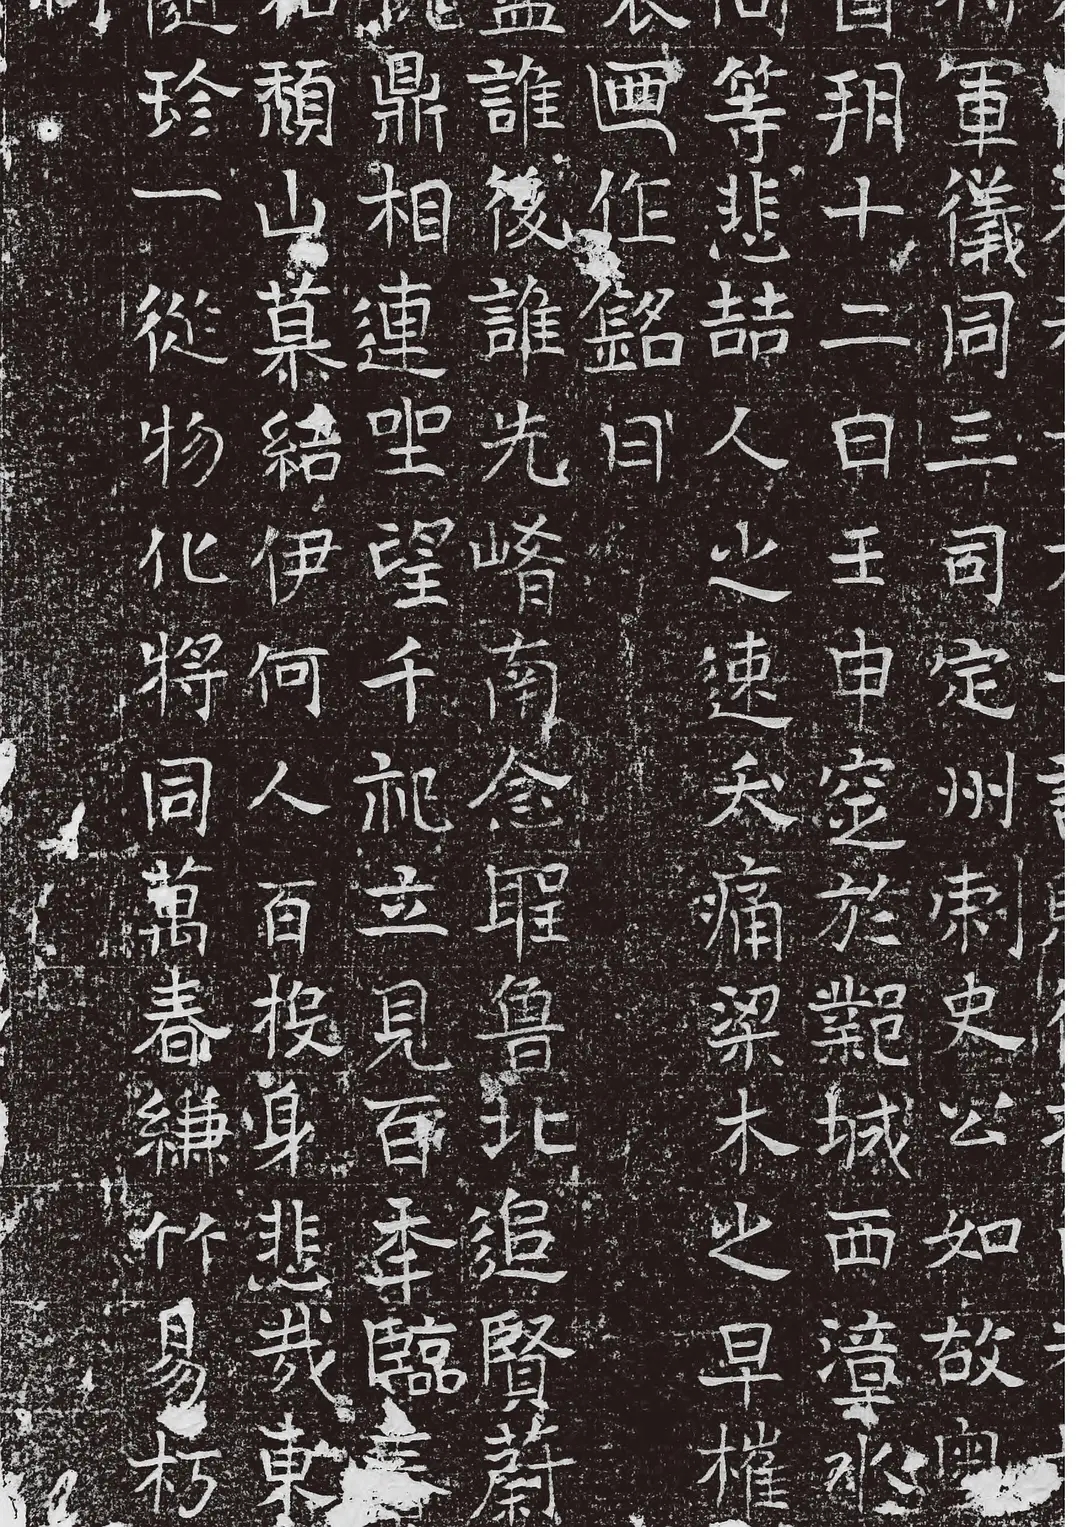 軍儀同三司定州刺史公如故
朔十二日壬申窆於鄴城西漳水
等悲喆人之速矣痛梁木之早摧
迺作銘曰
誰後誰先嵴南念聖魯北追賢蔚
鼎相連聖望千祀立見百年臨
頹山慕結伊何人百投身悲哉東
珍一從物化將同萬春縑竹易朽